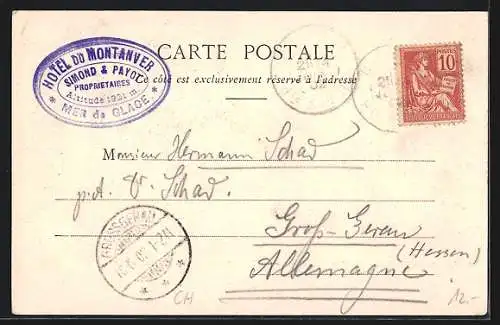 HOTEL DU MONTANVER
SIMOND & PAYOT
PROPRIETAIRES
Altitude 1921 m
* MER de GLACE *
CARTE POSTALE
Ce côté est exclusivement réservé à l'adresse
10
Monsieur Hermann Schad
p. A. V. Schad.
GROSSGERAU
Groß-Gerau
(Hessen)
Allemagne
CH
12.-